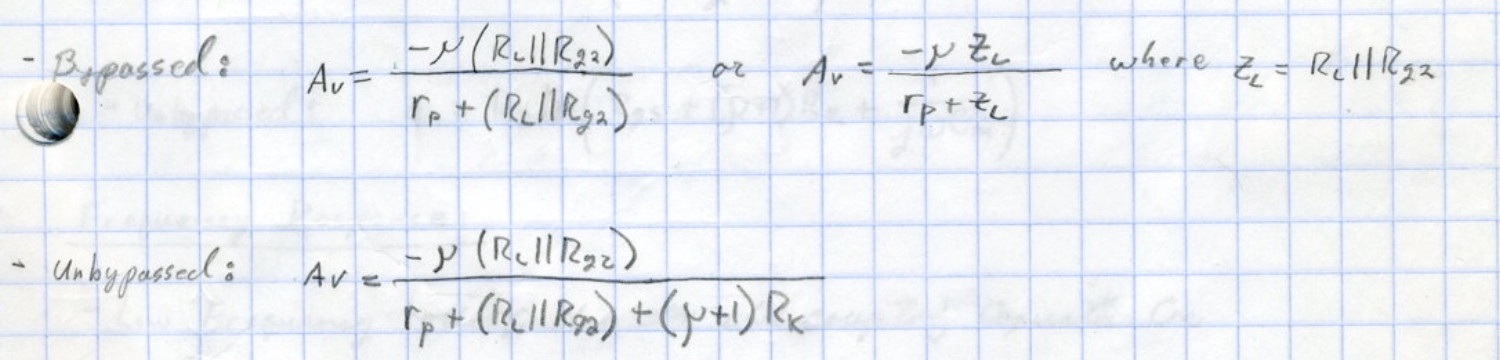 - Bypassed: Av = -μ (RL||Rg2) / rp + (RL||Rg2) or Av = -μ ZL / rp + ZL where ZL = RL||Rg2
- Unbypassed: Av = -μ (RL||Rg2) / rp + (RL||Rg2) + (μ+1) RK